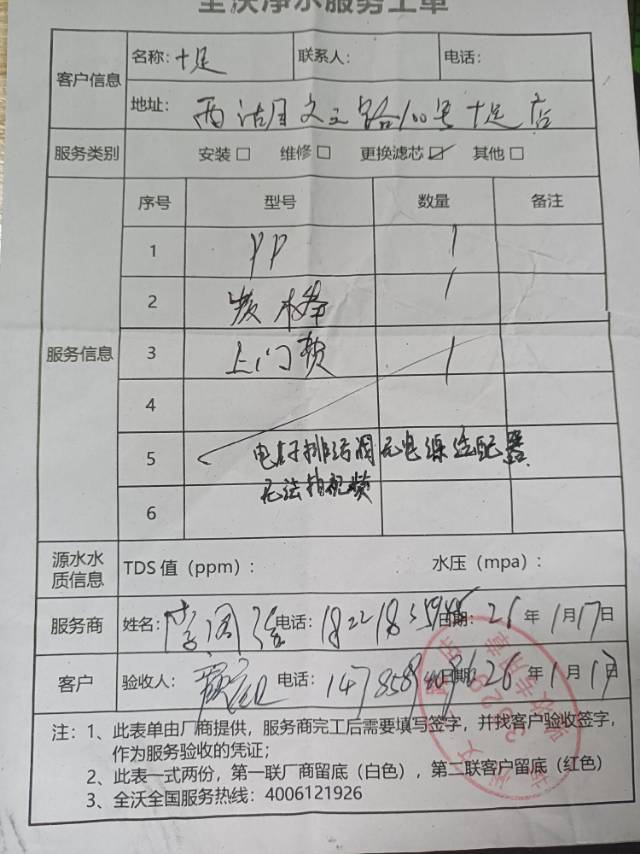 全沃净水服务工单
客户信息 名称：十足 联系人： 电话：
地址：西湖文三路100号十足店
服务类别 安装□ 维修□ 更换滤芯☑ 其他□
序号 型号 数量 备注
服务信息
1 PP 1
2 炭棒 1
3 上门费 1
4
5 电子排污阀无电源适配器
无法拍视频
6
源水水质信息 TDS 值（ppm）： 水压（mpa）：
服务商 姓名： 电话： 日期：26年1月17日
客户 验收人： 电话： 日期：26年1月17日
注：1、此表单由厂商提供，服务商完工后需要填写签字，并找客户验收签字，
作为服务验收的凭证；
2、此表一式两份，第一联厂商留底（白色），第二联客户留底（红色）
3、全沃全国服务热线：4006121926